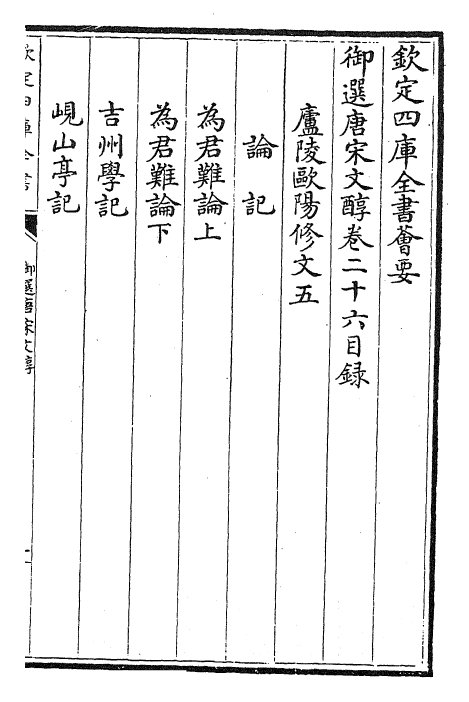 欽定四庫全書薈要
御選唐宋文醇卷二十六目録
廬陵歐陽修文五
論記
為君難論上
為君難論下
吉州學記
峴山亭記
欽定四庫全書
御選唐宋文醇